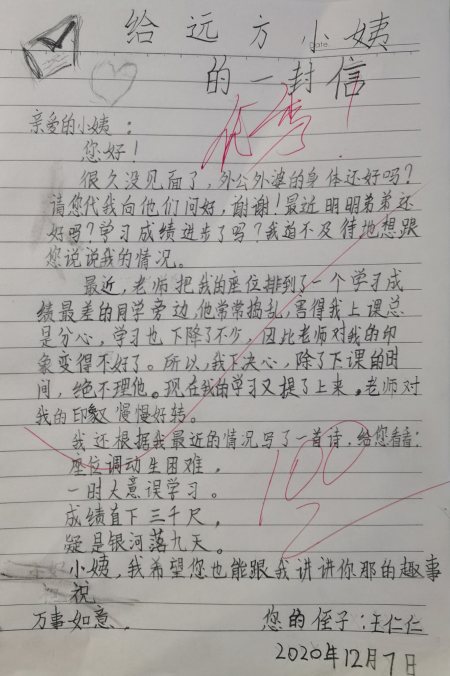 给远方小姨
的一封信
优秀
亲爱的小姨：
您好！
很久没见面了，外公外婆的身体还好吗？
请您代我向他们问好，谢谢！最近明明弟弟还
好吗？学习成绩进步了吗？我迫不及待地想跟
您说说我的情况。
最近，老师把我的座位排到了一个学习成
绩最差的同学旁边，他常常捣乱，害得我上课总
是分心，学习也下降了不少，因此老师对我的印
象变得不好了。所以，我下决心，除了下课的时
间，绝不理他。现在我的学习又提了上来。老师对
我的印象又慢慢好转。
我还根据我最近的情况写了一首诗，给您看看：
座位调动生困难，
一时大意误学习。
成绩直下三千尺，
疑是银河落九天。
100
小姨，我希望您也能跟我讲讲你那的趣事
祝
万事如意。 您的侄子：王仁仁
2020年12月7日